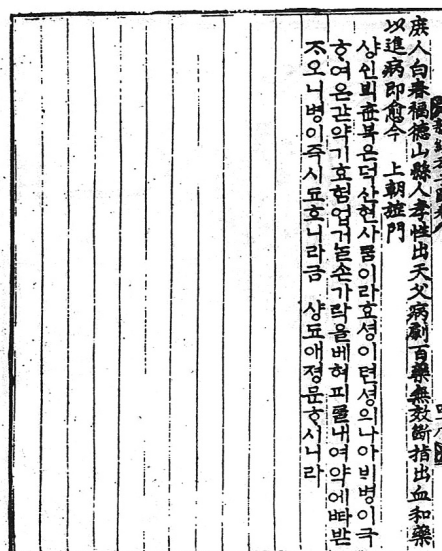 庶人白春福德山縣人孝性出天父病劇百藥無效斷指出血和藥
以進病即愈今 上朝旌門
샹인ᄇᆡᆨ츈복은덕산현사ᄅᆞᆷ이라효셩이텬셩의나아비병이극
ᄒᆞ여온갇약기효험업거ᄂᆞᆯ손가락을베혀피ᄅᆞᆯ내여약에ᄩᅡ받
ᄌᆞ오니병이즉시됴ᄒᆞ니라금 샹됴애졍문ᄒᆞ시니라